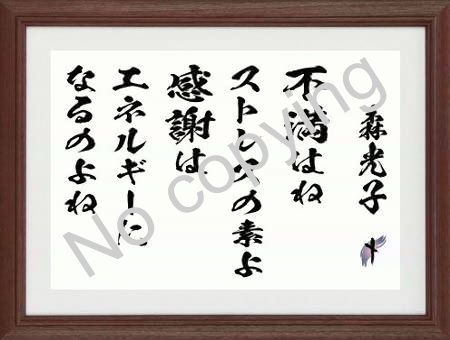 森光子
不満はね
ストレスの素よ
感謝は
エネルギーに
なるのよね
No copying